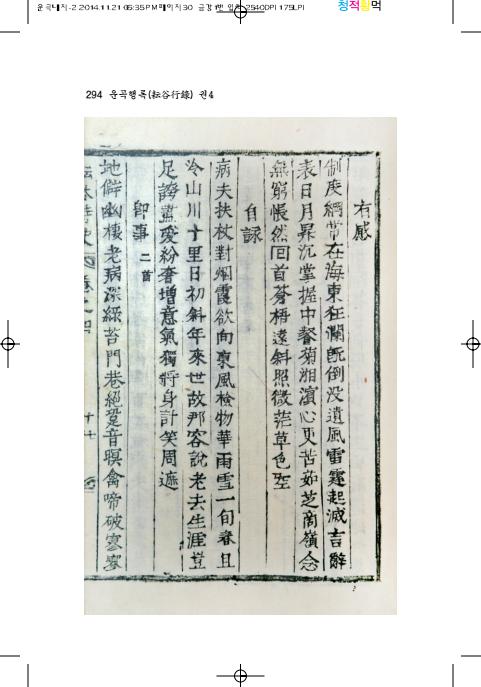 운곡내지-2 2014.11.21 05:35 PM 페이지30 2540DPI 175LPI
청적황먹
294 운곡행록(耘谷行錄) 권4
有感
制度綱常在海東狂瀾旣倒没遺風雷霆起滅吉辭
表日月昇沉掌握中餐菊湘濵心更苦茹芝商嶺念
無窮悵然回首蒼梧遠斜照微茫草色空
自詠
病夫扶杖對烟霞欲向東風檢物華雨雪一旬春且
冷山川十里日初斜年來世故那容說老去生涯豈
足誇驚愛紛奢增意氣獨將身計笑周遮
即事 二首
地僻幽棲老病深綠苔門巷絕跫音暝禽啼破寥寥
十七